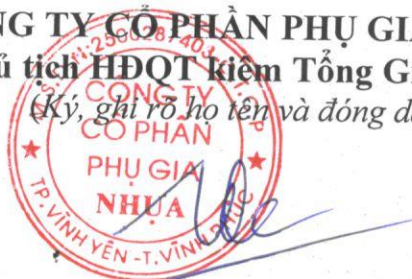 NG TY CỔ PHẦN PHỤ GIA
tịch HĐQT kiêm Tổng G
(Ký, ghi rõ họ tên và đóng d
CÔNG TY
CỔ PHẦN
PHỤ GIA
NHỰA
TP. VĨNH YÊN - T. VĨNH PHÚC